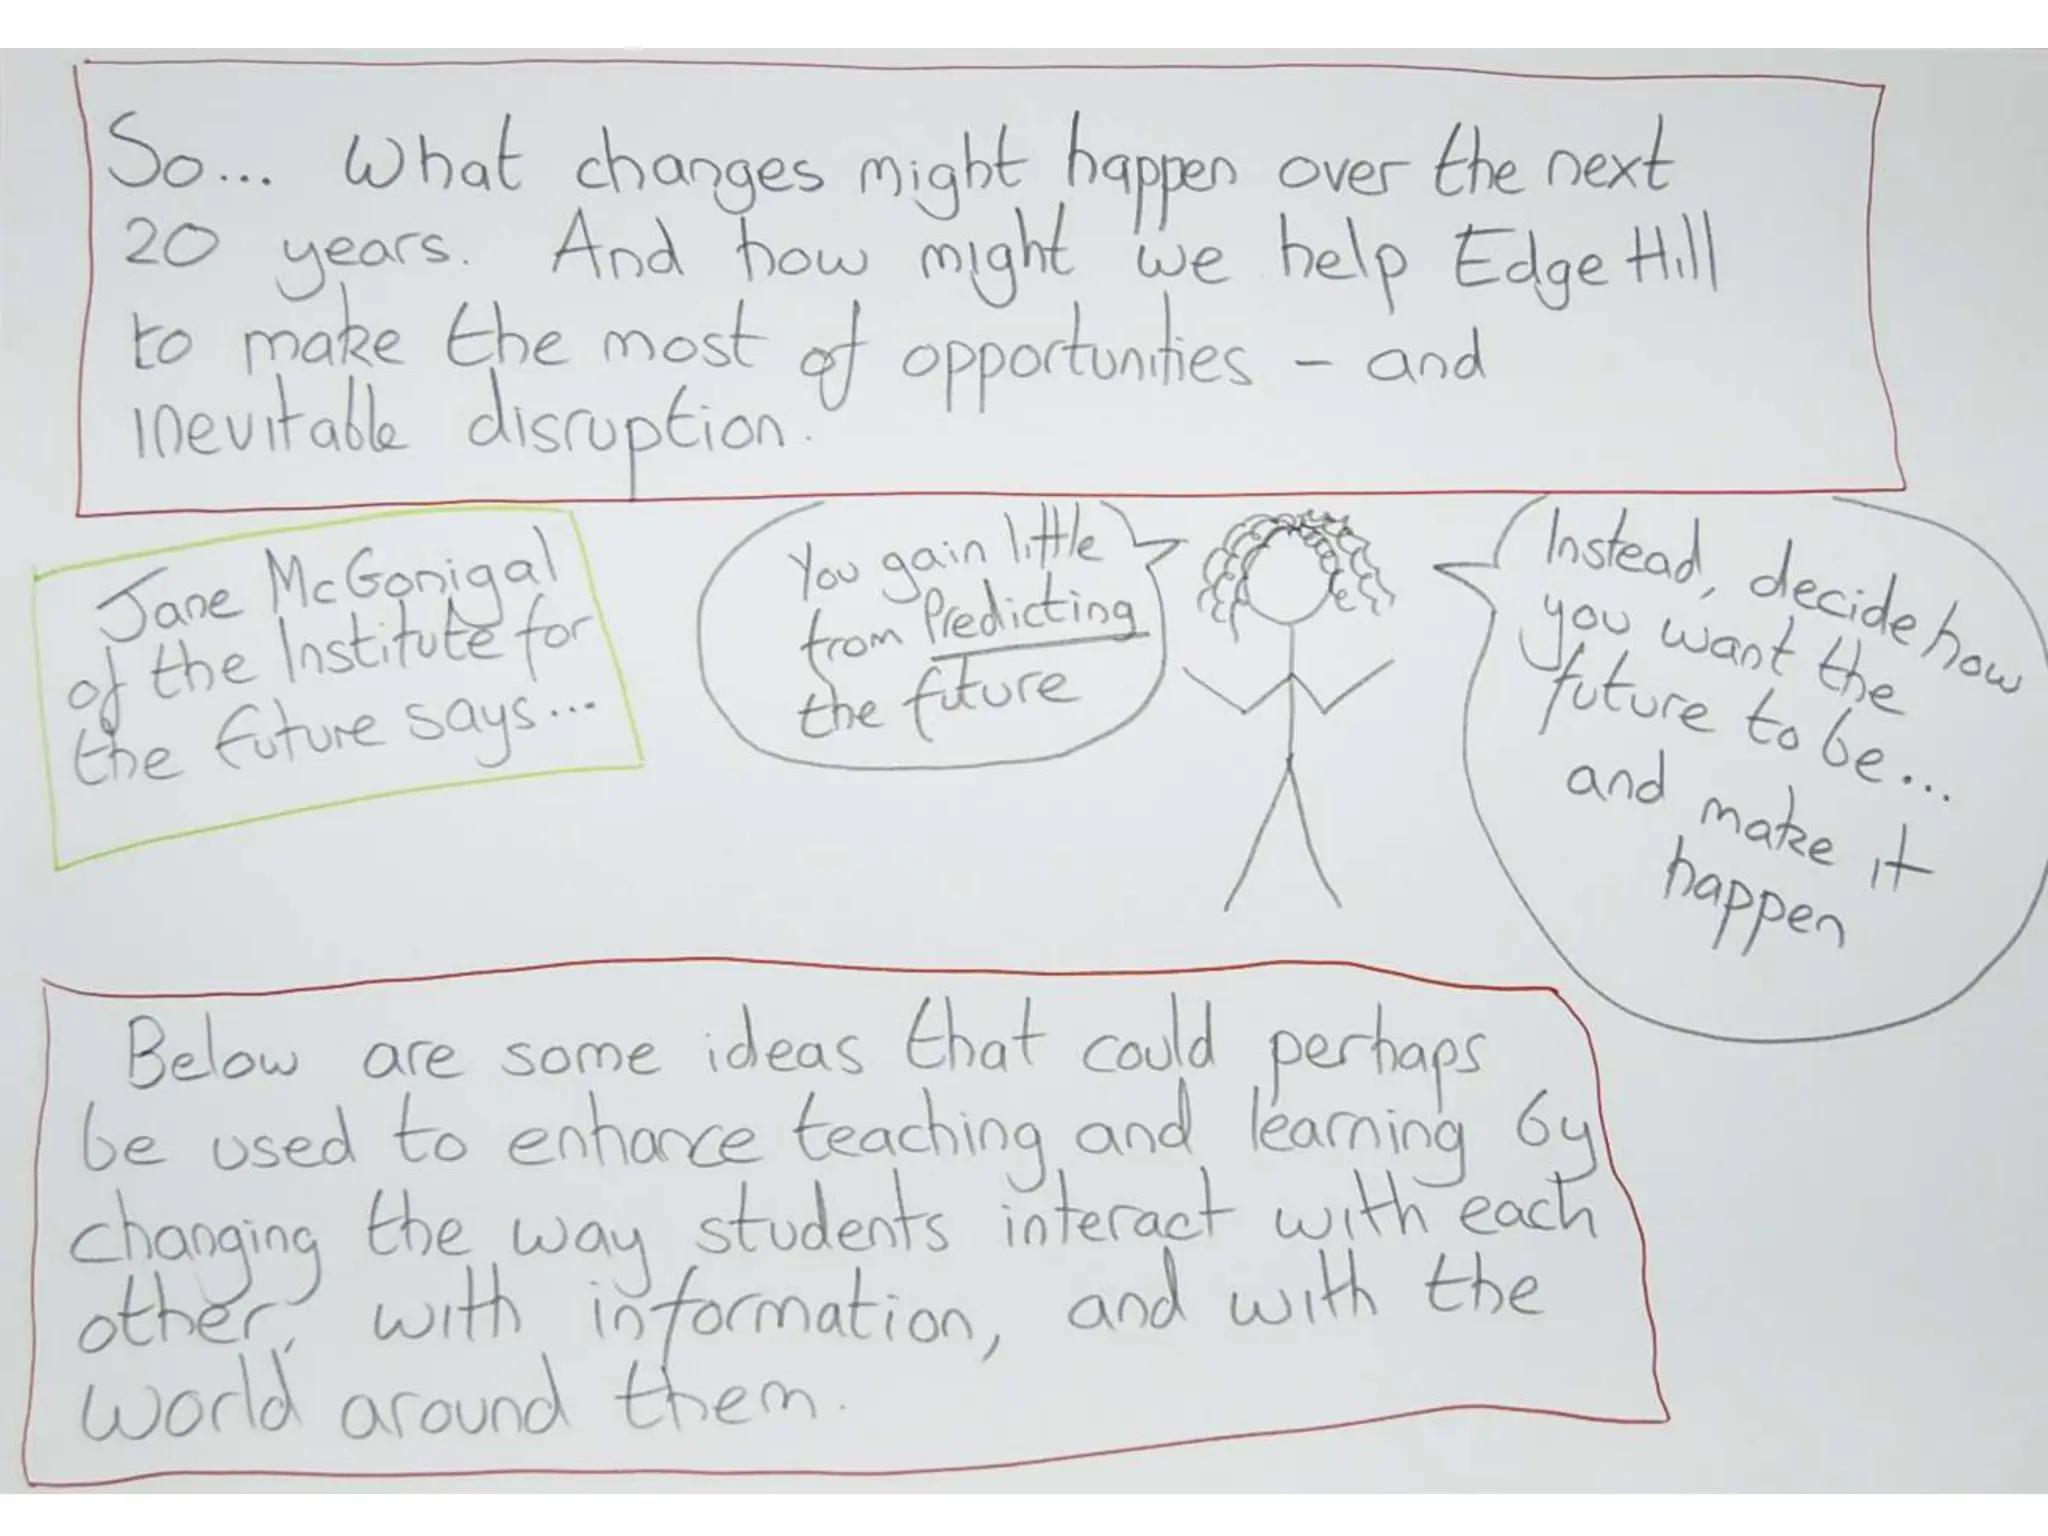 So... What changes might happen over the next
20 years. And how might we help Edge Hill
to make the most of opportunities – and
inevitable disruption.
Jane McGonigal
of the Institute for
the future says...
You gain little
from Predicting
the future
Instead, decide how
you want the
future to be...
and make it
happen
Below are some ideas that could perhaps
be used to enhance teaching and learning by
changing the way students interact with each
other, with information, and with the
world around them.